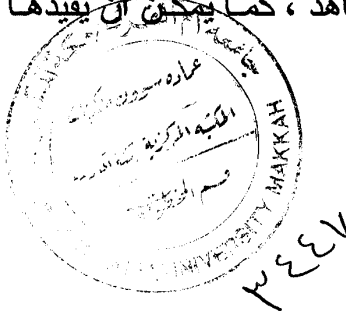 اهد ، كما يمكن أن يفيدها
جامعة أم القرى
عمادة شؤون المكتبات
المكتبة المركزية
قسم المخطوطات
UNIVERSITY MAKKAH
٣٤٤٧